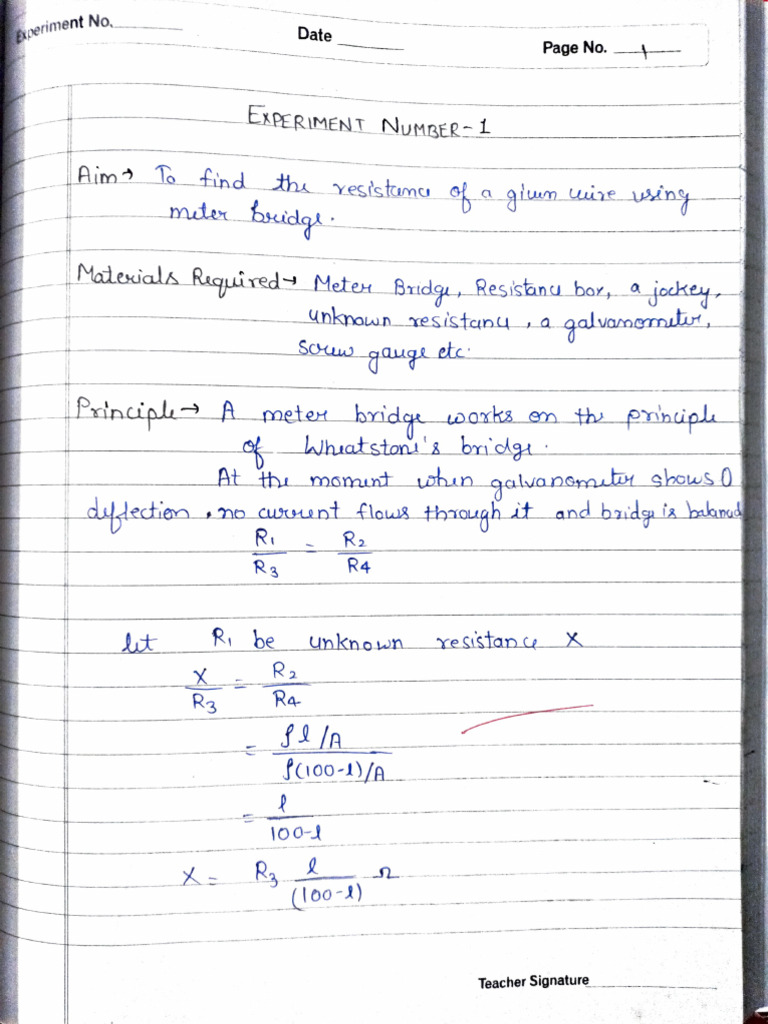 Experiment No.
Date
Page No. 1
EXPERIMENT NUMBER-1
Aim→ To find the resistance of a given wire using
meter bridge.
Materials Required→ Meter Bridge, Resistance box, a jockey,
unknown resistance, a galvanometer,
screw gauge etc.
Principle→ A meter bridge works on the principle
of Wheatstone's bridge.
At the moment when galvanometer shows 0
deflection, no current flows through it and bridge is balanced
R₁/R₃ = R₂/R₄
let R₁ be unknown resistance X
X/R₃ = R₂/R₄
= ρl/A / ρ(100-l)/A
= l/100-l
X = R₃ l/(100-l) Ω
Teacher Signature